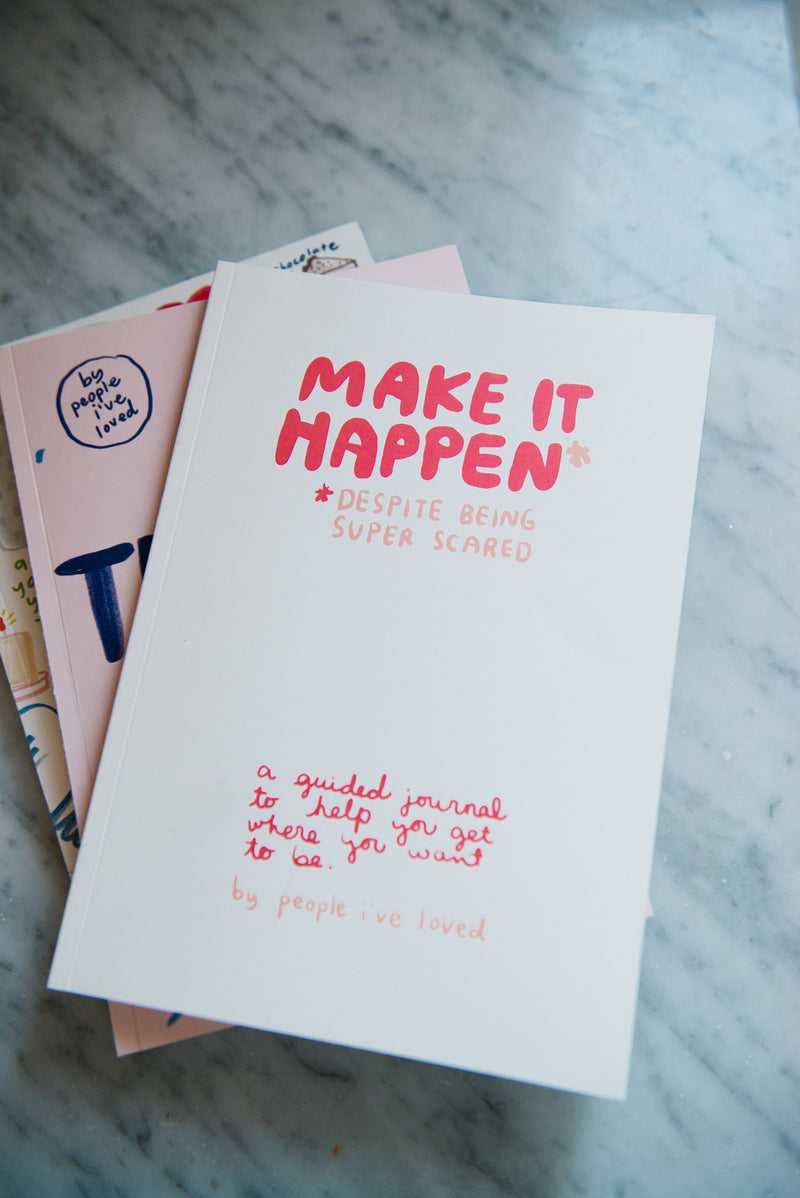 MAKE IT
HAPPEN*
*DESPITE BEING
SUPER SCARED
a guided journal
to help you get
where you want
to be.
by people i've loved
by
people
i've
loved
T
chocolate